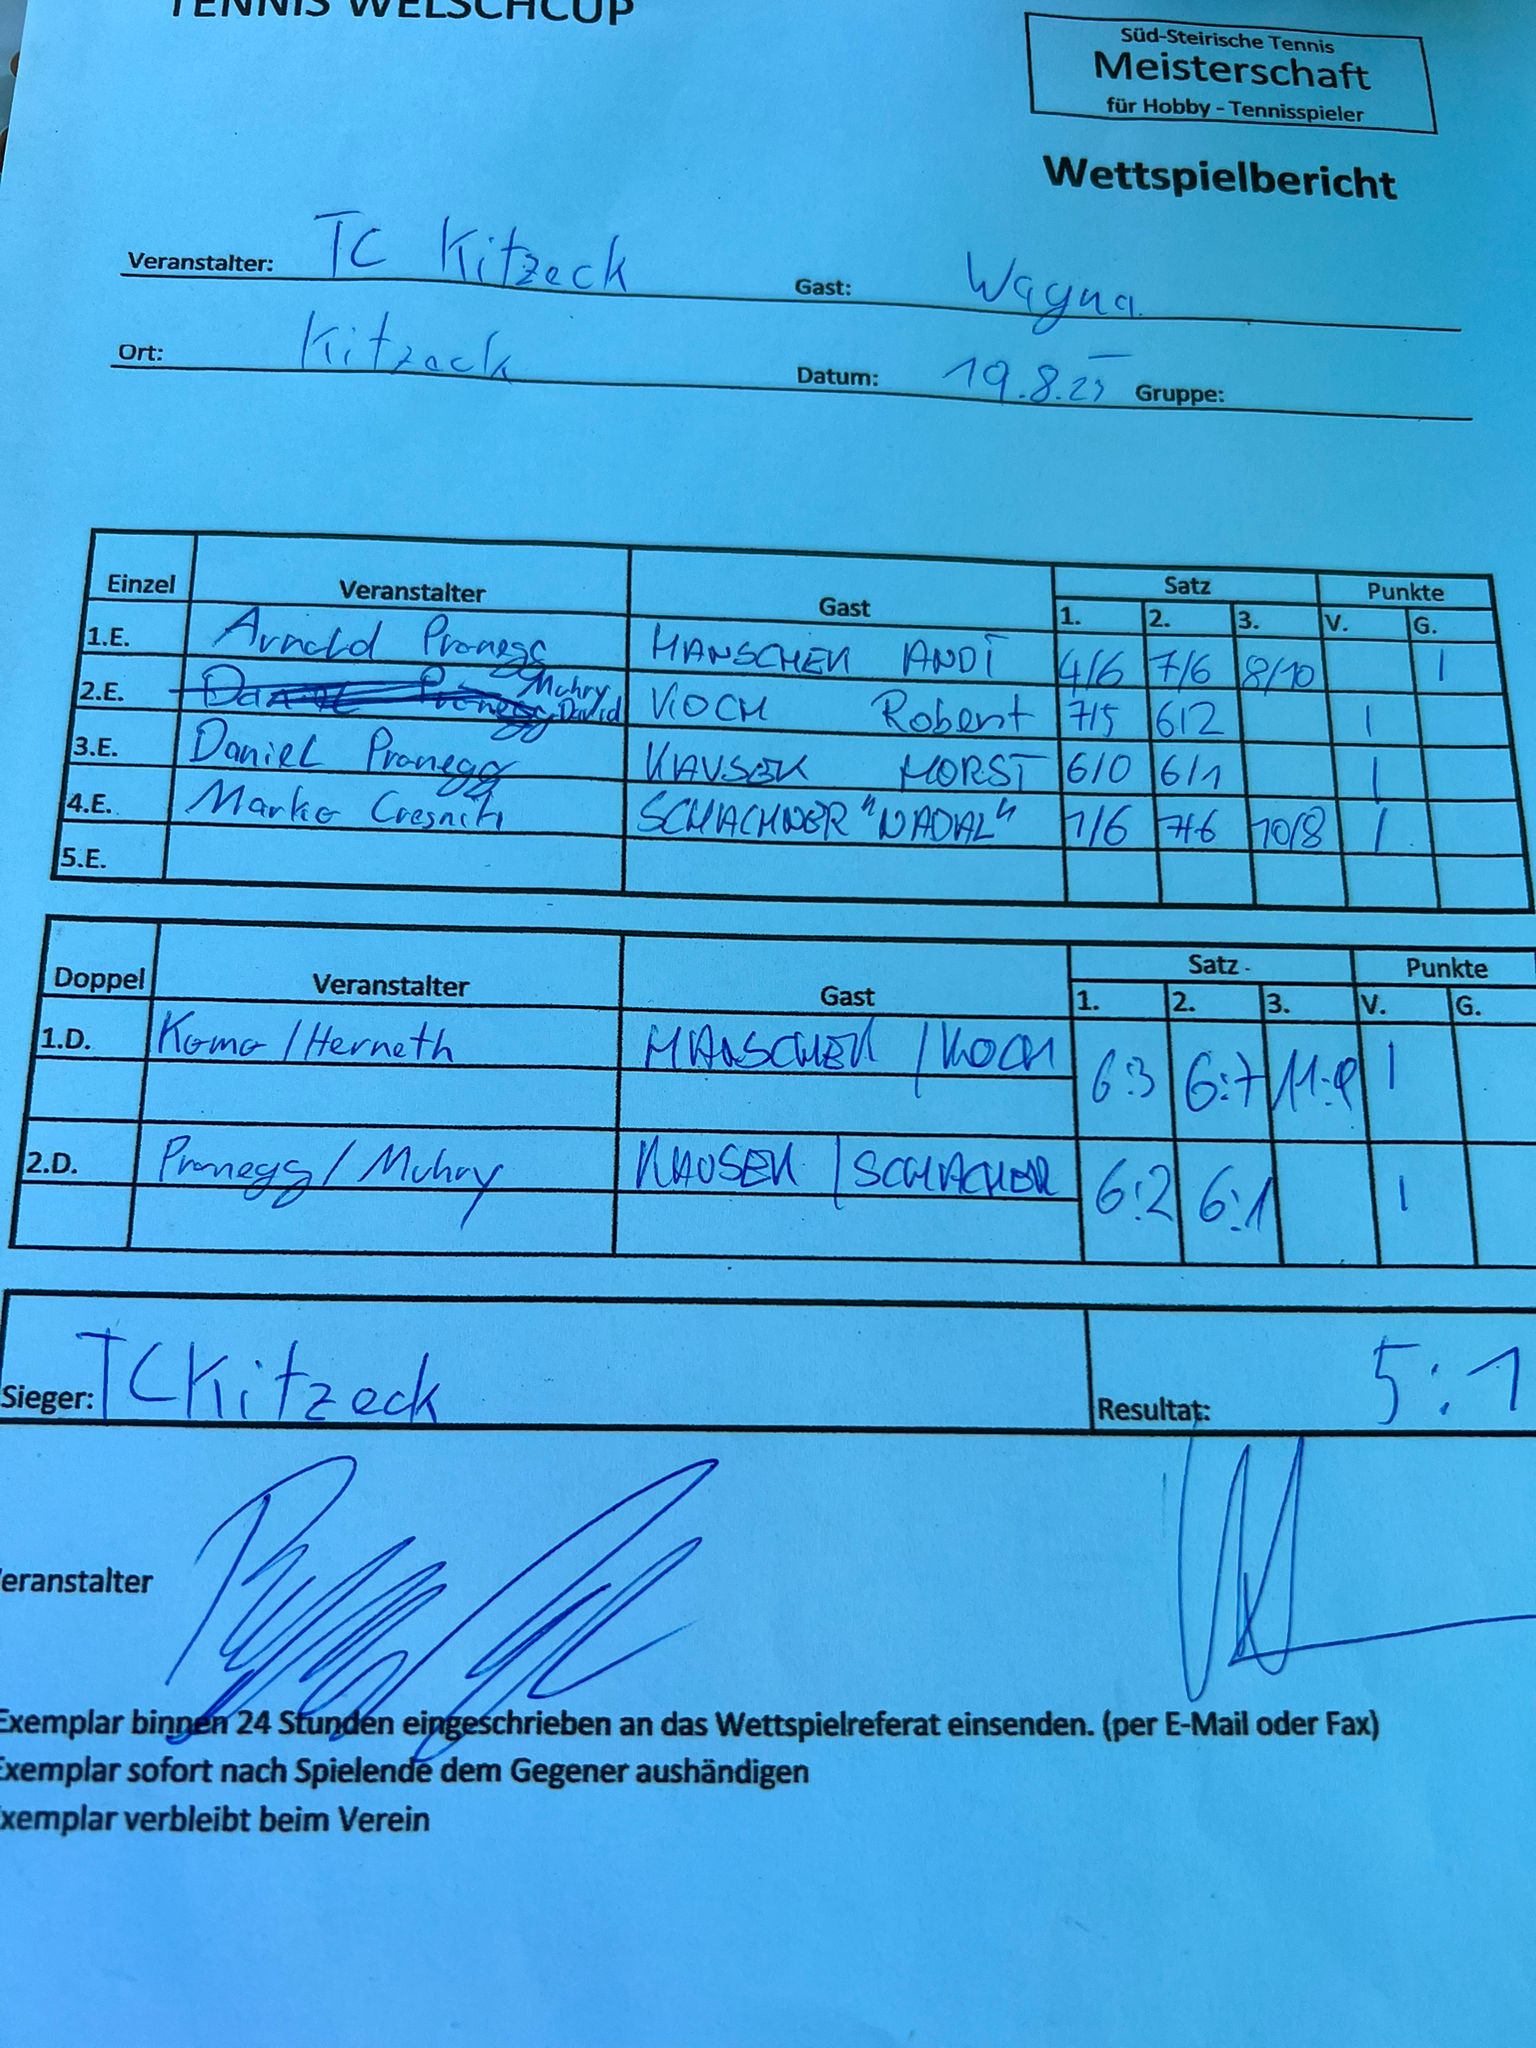 TENNIS WELSCHCUP
Süd-Steirische Tennis
Meisterschaft
für Hobby - Tennisspieler
Wettspielbericht
Veranstalter: TC Kitzeck Gast: Wagna
Ort: Kitzeck Datum: 19.8.25 Gruppe:
Einzel Veranstalter Gast Satz Punkte
1. 2. 3. V. G.
1.E. Arnold Pronegg MANSCHEK ANDI 4/6 7/6 8/10 1
2.E. Muhry David KOCH Robert 7/5 6/2 1
3.E. Daniel Pronegg KAUSEK HORST 6/0 6/1 1
4.E. Marko SCHACHNER "NADAL" 1/6 7/6 10/8 1
5.E.
Doppel Veranstalter Gast Satz Punkte
1. 2. 3. V. G.
1.D. Komo / Herneth MANSCHEK / KOCH 6:3 6:7 1
2.D. Pronegg / Muhry KAUSEK / SCHACHER 6:2 6:1 1
Sieger: TC Kitzeck Resultat: 5:1
eranstalter
Exemplar binnen 24 Stunden eingeschrieben an das Wettspielreferat einsenden. (per E-Mail oder Fax)
Exemplar sofort nach Spielende dem Gegener aushändigen
xemplar verbleibt beim Verein